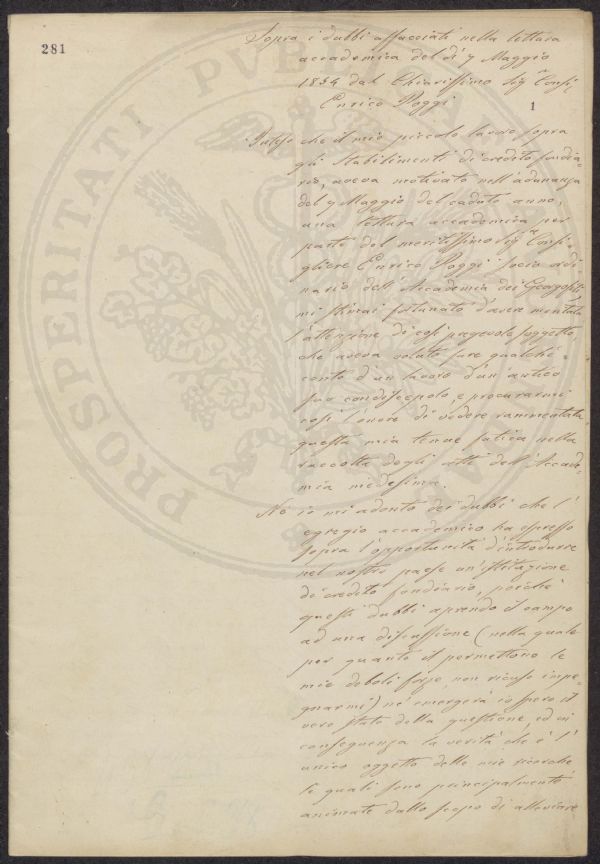 281
Sopra i dubbi affacciati nella lettura
accademica del dì 7 Maggio
1854 dal Chiarissimo Sig.r Consi.
Enrico Poggi
1
Inteso che il mio piccolo lavoro sopra
gli stabilimenti di credito fondia=
rio, aveva motivato nell'adunanza
del 7 Maggio del caduto anno,
una lettura accademica per
parte del meritissimo Sig.r Consi=
gliere Enrico Poggi socio ordi=
nario dell'Accademia dei Georgofili,
mi stimai fortunato d'avere meritata
l'attenzione di così pregevole soggetto,
che aveva voluto fare qualche
conto d'un lavoro d'un antico
suo condiscepolo, e procurarmi
così l'onore di vedere rammentata
questa mia tenue fatica nella
raccolta degli atti dell'Accade=
mia medesima.
Nè io mi adonto dei dubbi che l'
egregio accademico ha espresso
sopra l'opportunità d'introdurre
nel nostro paese un'istituzione
di credito fondiario, poichè
questi dubbi aprendo il campo
ad una discussione (nella quale
per quanto il permettono le
mie deboli forze, non ricuso impe=
gnarmi) ne emergerà io spero il
vero stato della questione, ed in
conseguenza la verità che è l'
unico oggetto delle mie ricerche
le quali sono principalmente
animate dallo scopo di alleviare
PROSPERITATI PUBLICAE